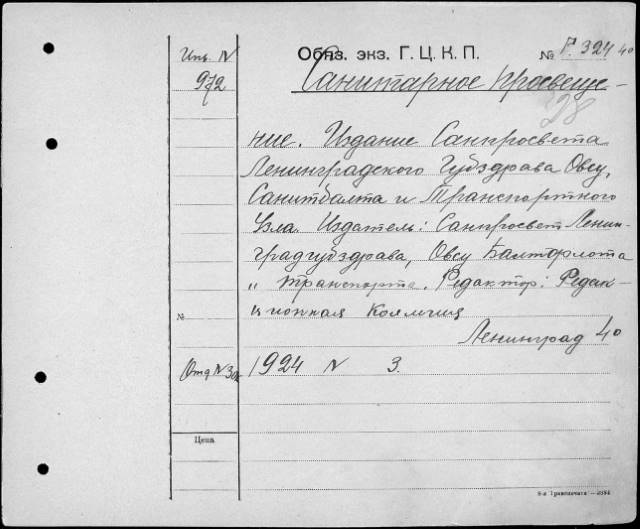 Инв. N
972
Обяз. экз. Г. Ц. К. П. № Р. 324 40
Санитарное просвеще-
328
ние. Издание Санпросвета
Ленинградского Губздрава Овсу,
Санитбалта и Транспортного
Узла. Издатель: Санпросвет Ленин-
градгубздрава, Овсу Балтфлота
„ транспорта. Редактор: Редак-
№ ционная Коллегия
Ленинград 40
Отд N 30к 1924 N 3.
Цена